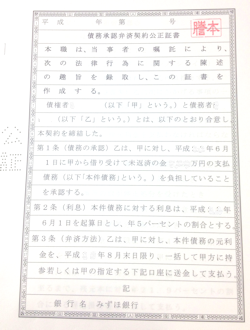 平成 年第 号
謄本
債務承認弁済契約公正証書
本職は、当事者の嘱託により、
次の法律行為に関する陳述
の趣旨を録取し、この証書を
作成する。
債権者 (以下「甲」という。)と債務者
(以下「乙」という。)とは、以下のとおり合意し、
本契約を締結した。
第1条(債務の承認)乙は、甲に対し、平成 年6月
1日に甲から借り受けて未返済の金 万円の支払
債務(以下「本件債務」という。)を負担していること
を承認する。
第2条(利息)本件債務に対する利息は、平成 年
6月1日を起算日とし、年5パーセントの割合とする。
第3条(弁済方法)乙は、甲に対し、本件債務の元利
金を、平成 年8月末日限り、一括して甲方に持
参若しくは甲の指定する下記口座に送金して支払う。
記
銀行名 みずほ銀行
公
証